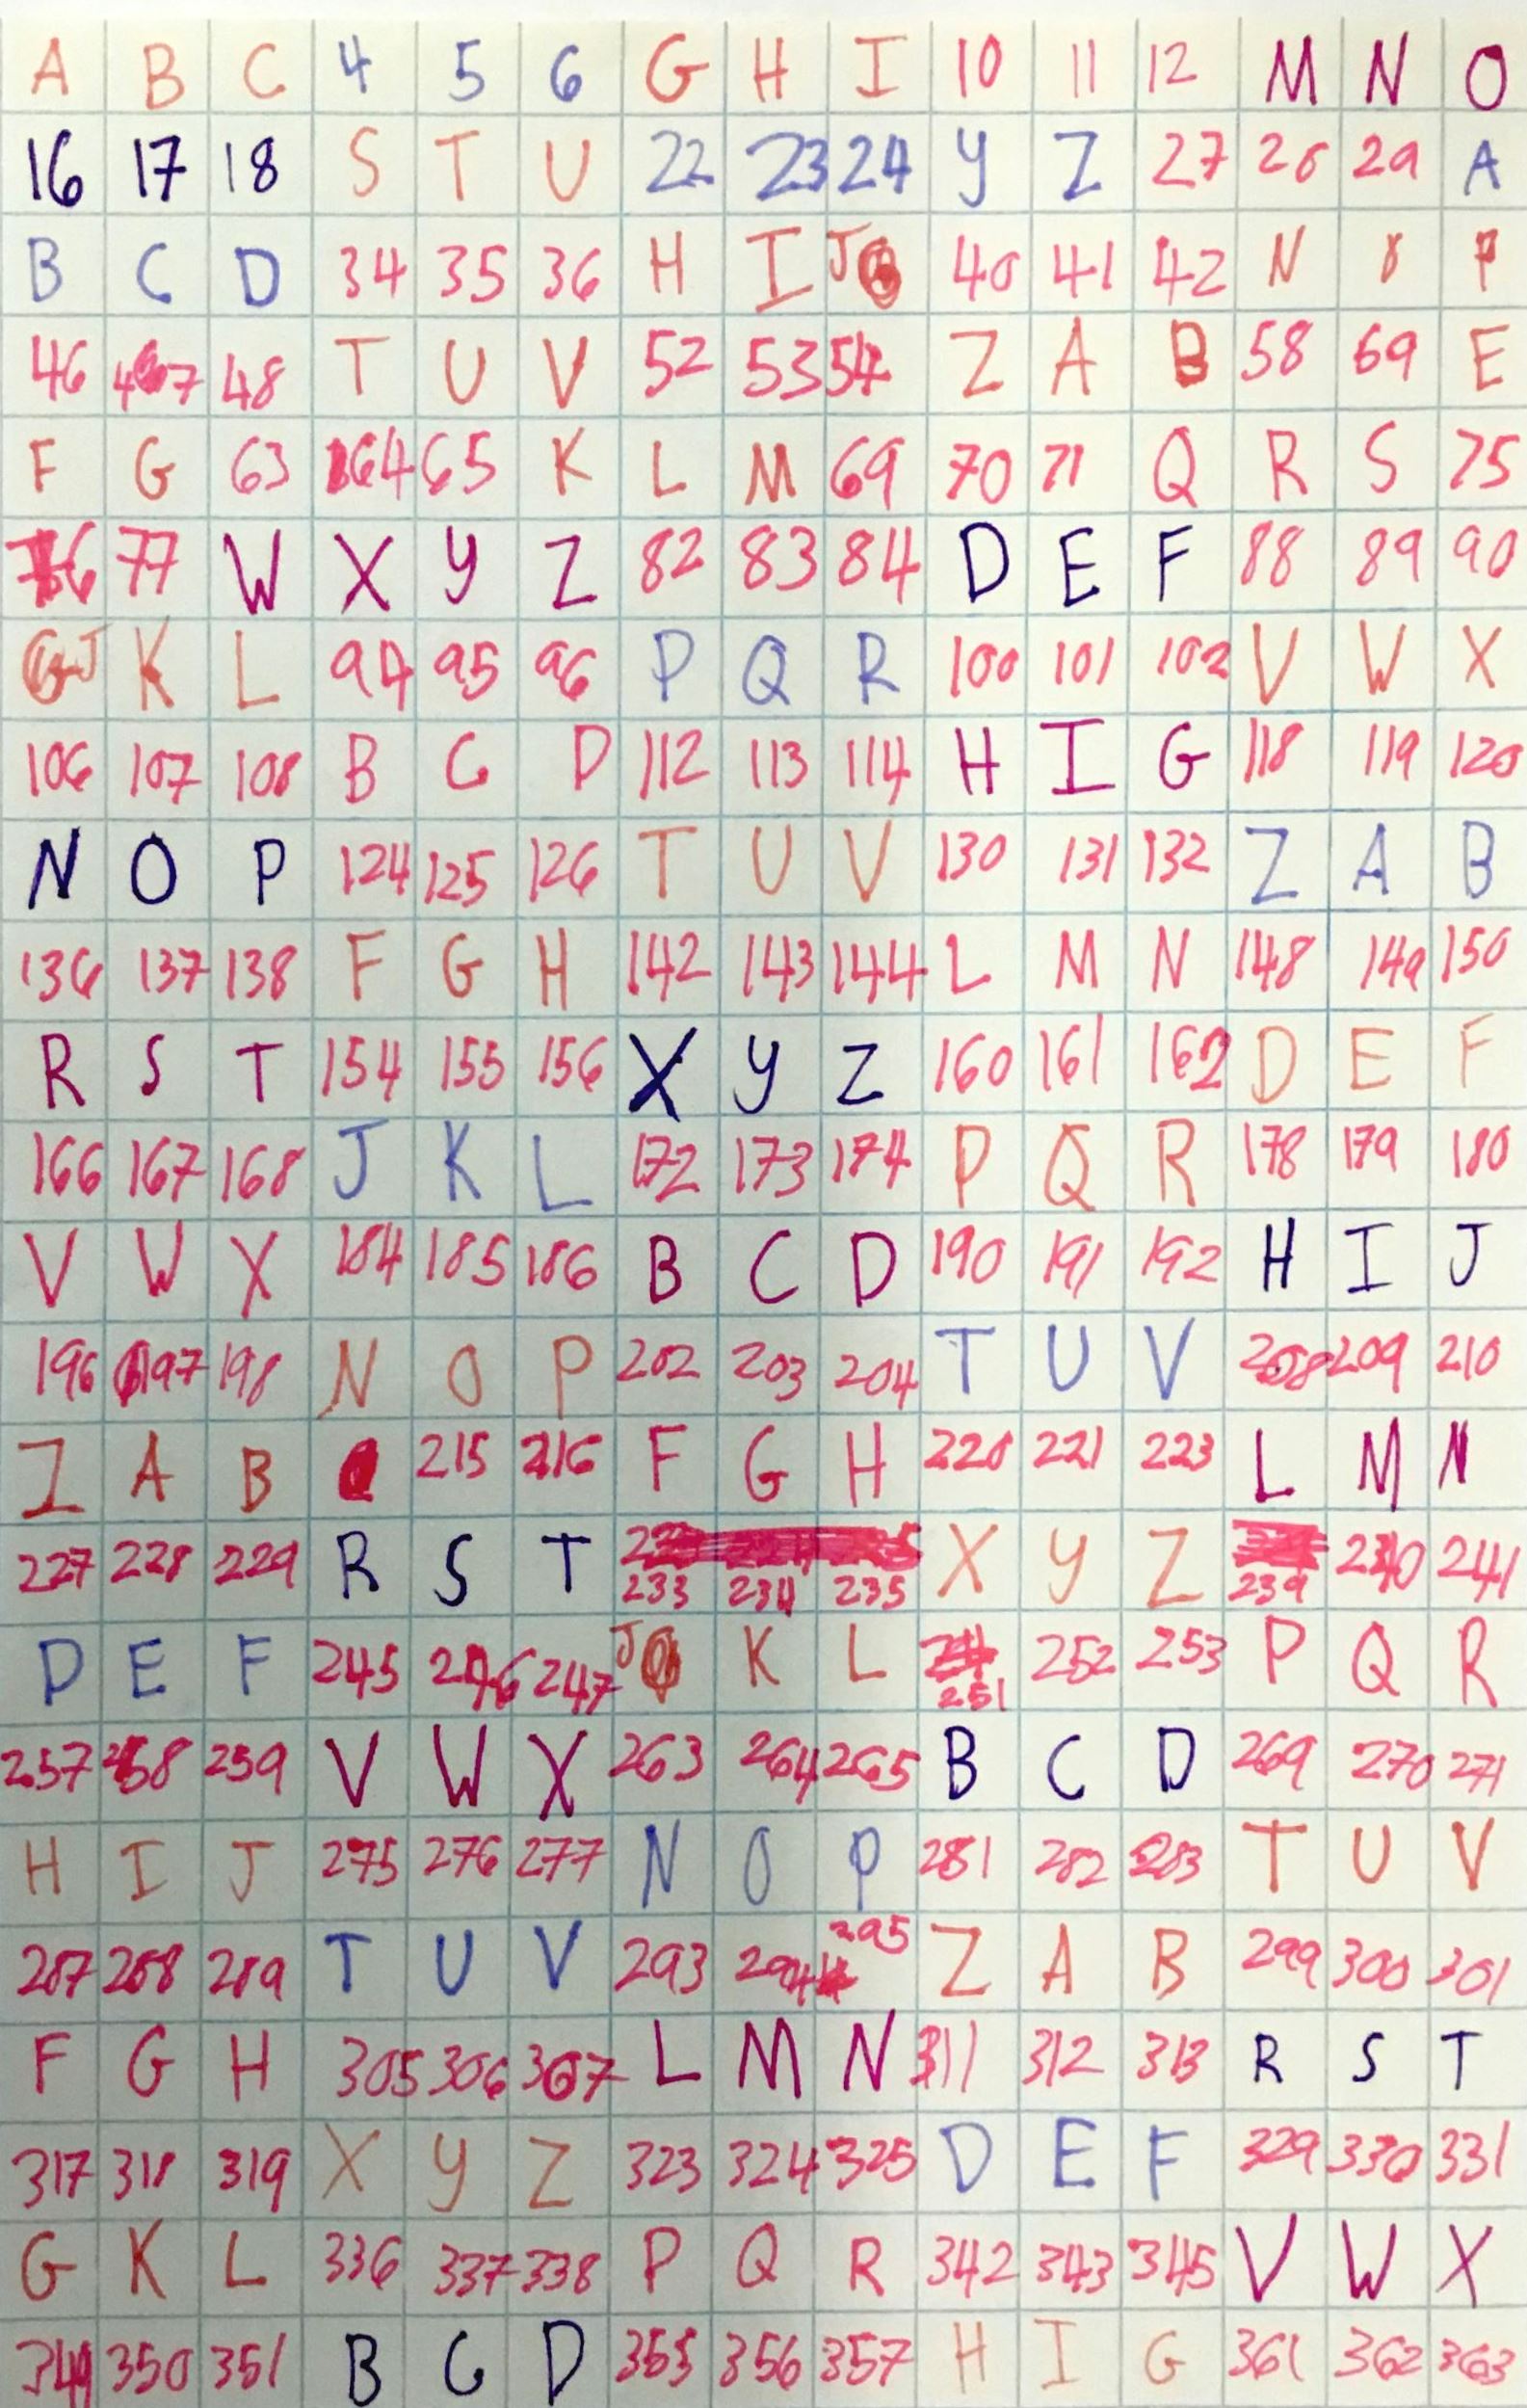 A B C 4 5 6 G H I 10 11 12 M N O
16 17 18 S T U 22 23 24 Y Z 27 28 29 A
B C D 34 35 36 H I J 40 41 42 N O P
46 47 48 T U V 52 53 54 Z A B 58 59 E
F G 63 64 65 K L M 69 70 71 Q R S 75
76 77 W X Y Z 82 83 84 D E F 88 89 90
J K L 94 95 96 P Q R 100 101 102 V W X
106 107 108 B C D 112 113 114 H I G 118 119 120
N O P 124 125 126 T U V 130 131 132 Z A B
136 137 138 F G H 142 143 144 L M N 148 149 150
R S T 154 155 156 X Y Z 160 161 162 D E F
166 167 168 J K L 172 173 174 P Q R 178 179 180
V W X 184 185 186 B C D 190 191 192 H I J
196 197 198 N O P 202 203 204 T U V 208 209 210
Z A B 215 216 F G H 220 221 223 L M N
227 228 229 R S T 233 234 235 X Y Z 239 240 241
D E F 245 246 247 J K L 251 252 253 P Q R
257 258 259 V W X 263 264 265 B C D 269 270 271
H I J 275 276 277 N O P 281 282 283 T U V
287 288 289 T U V 293 294 295 Z A B 299 300 301
F G H 305 306 307 L M N 311 312 313 R S T
317 318 319 X Y Z 323 324 325 D E F 329 330 331
G K L 336 337 338 P Q R 342 343 345 V W X
349 350 351 B C D 355 356 357 H I G 361 362 363